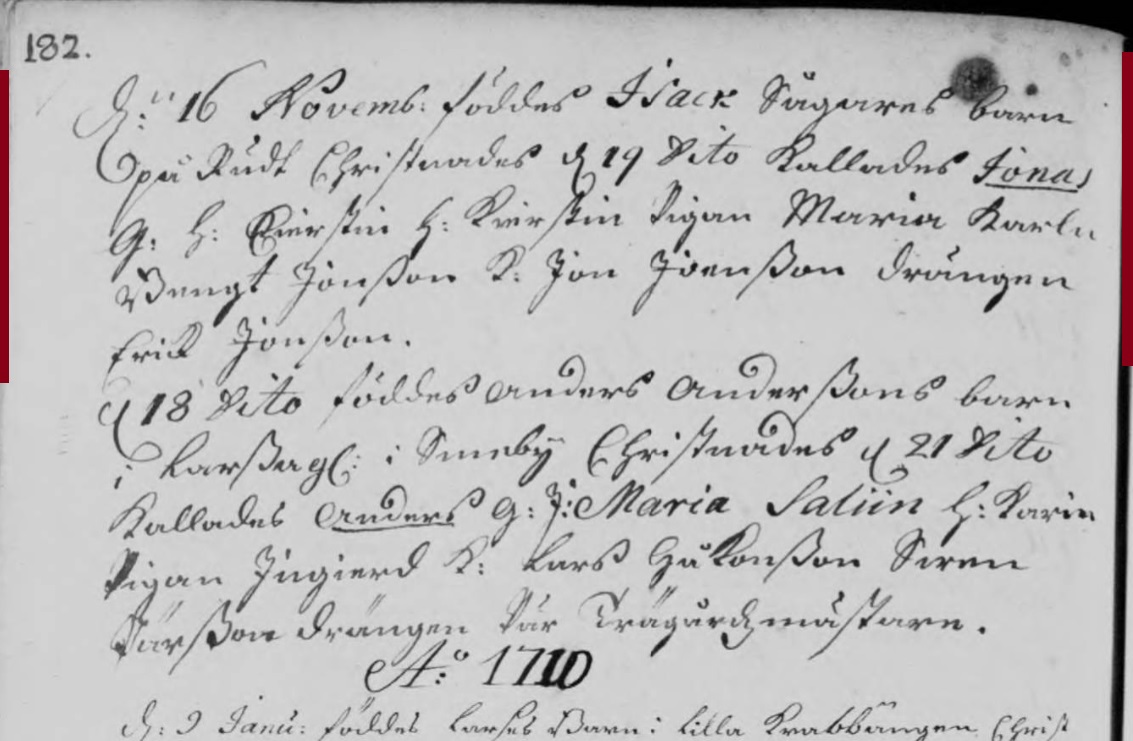 182.
d: 16 Novemb: föddes Isack Sågares barn
på Rudt Christnades d 19 Dito Kallades Jonas
G: H: Kierstin H: Kierstin Pigan Maria Karln
Bengt Jonßon K: Jon Joenßon drängen
Erick Jonßon.
d 18 Dito föddes Anders Anderßons barn
i Larßag: i Smeby Christnades d 21 Dito
Kallades Anders G: J: Maria Saliin H: Karin
Pigan Ingierd K: Lars Håkonßon Swen
Pärßon drängen Pär Trägårdzmästare.
Ao: 1710
d: 9 Janu: föddes Larses Barn i Lilla Krabbängen Christ